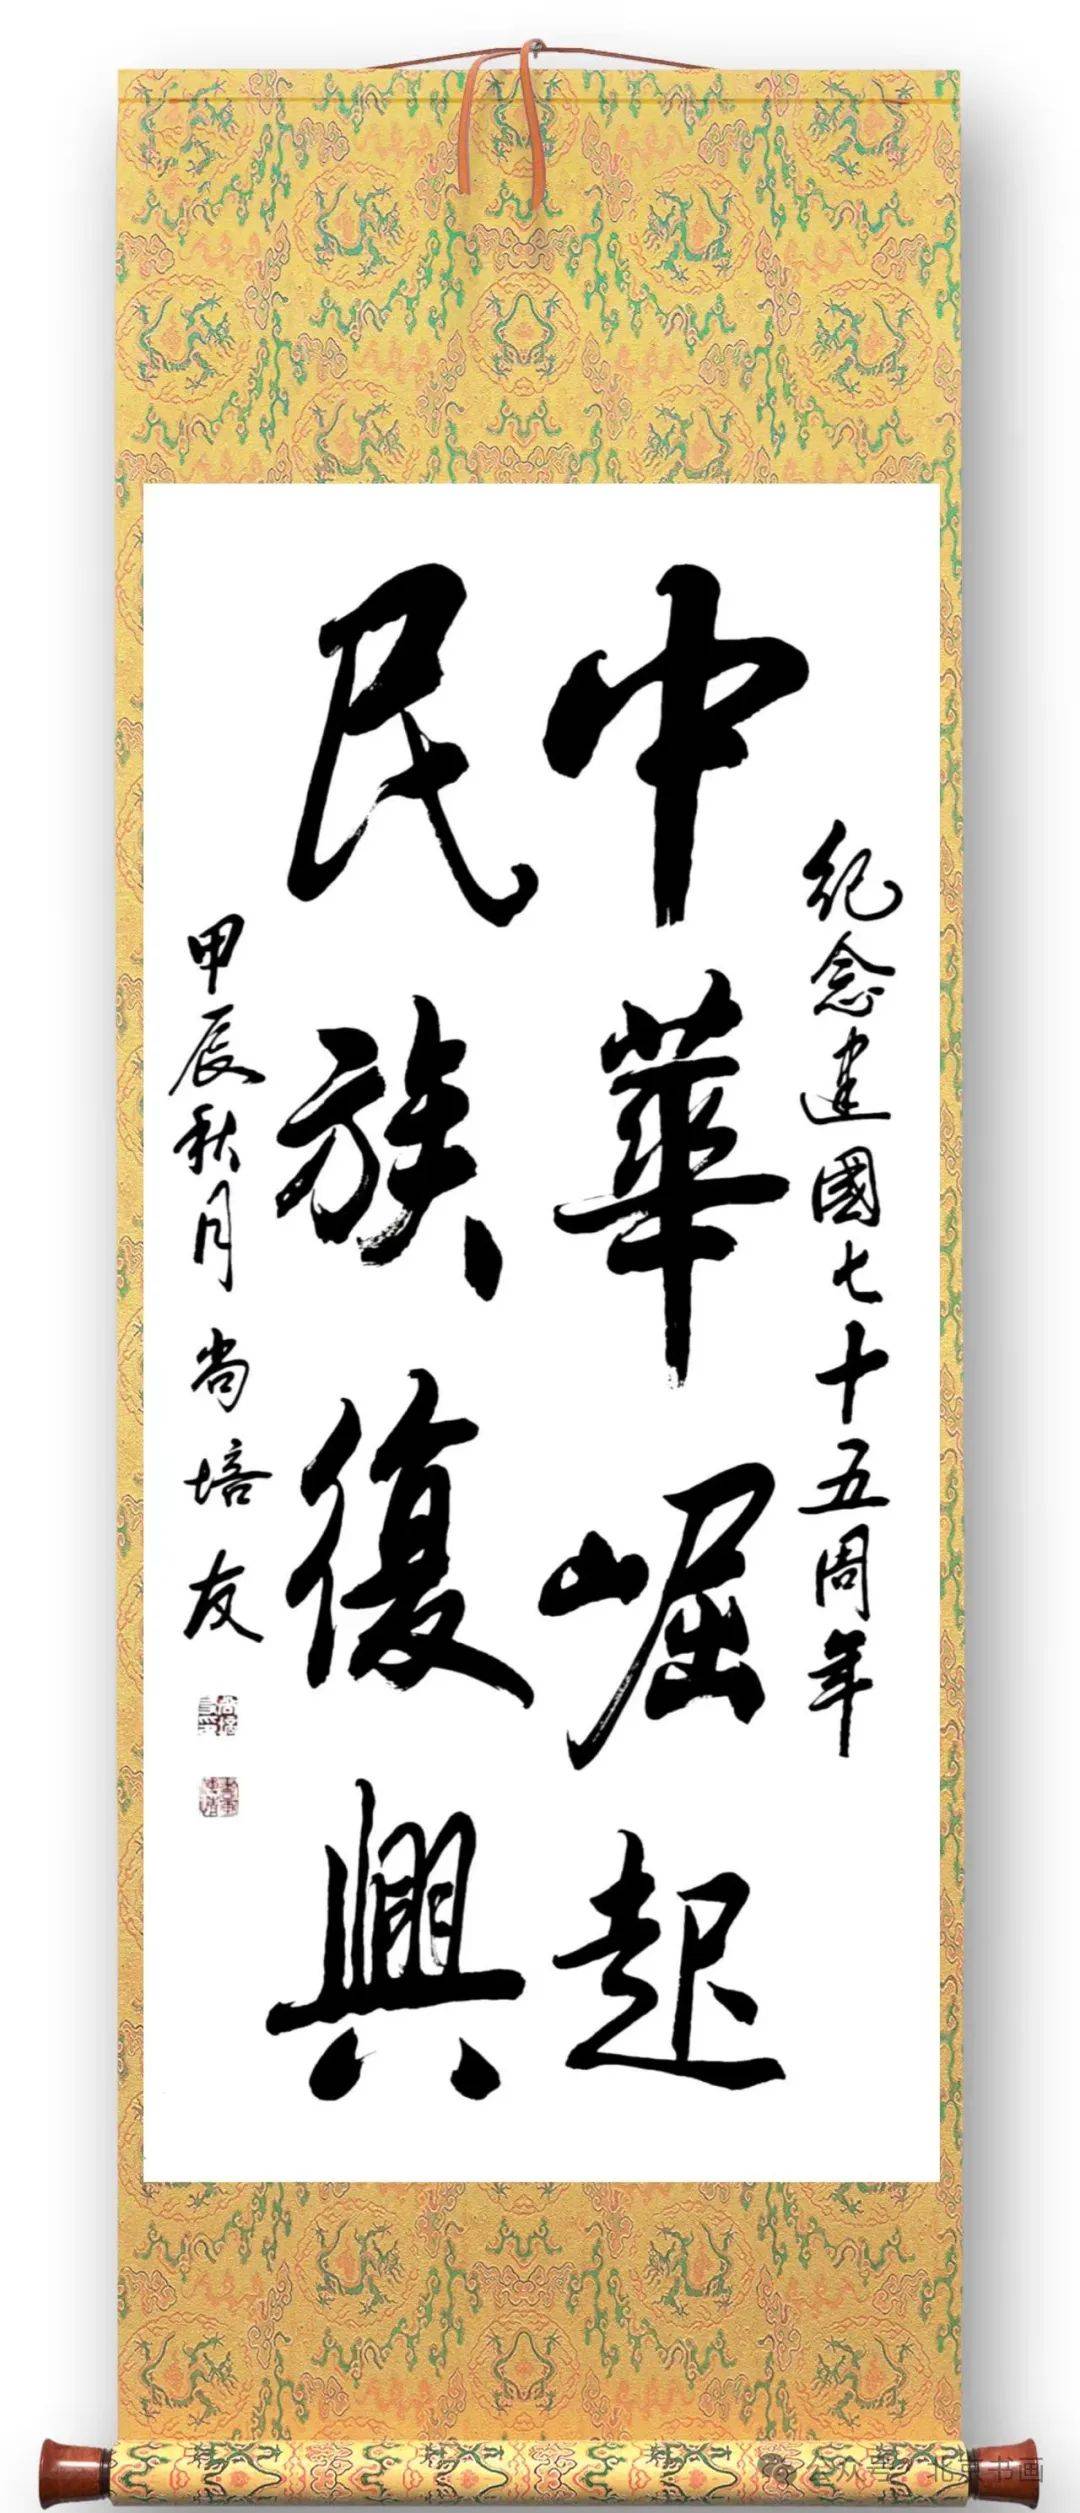 紀念建國七十五周年
中華崛起
民族復興
甲辰秋月 尚培友
公众号 · 北京书画